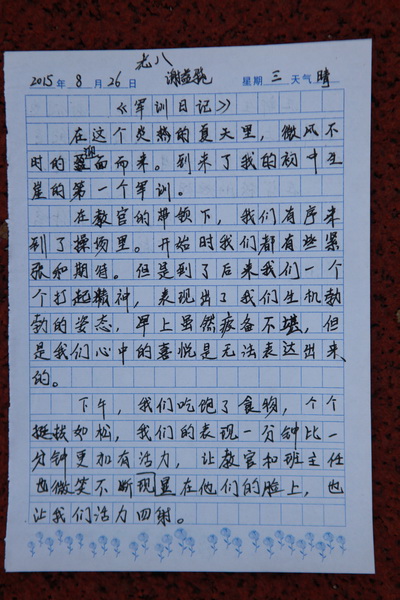 尤八
2015年 8月 26日 谢益 星期三 天气晴
《军训日记》
在这个炎热的夏天里，微风不
时的迎面而来。到来了我的初中生
崖的第一个军训。
在教官的带领下，我们有序来
到了操场里。开始时我们都有些紧
张和期待。但是到了后来我们一个
个打起精神，表现出了我们生机勃
勃的姿态，早上虽然疲备不堪，但
是我们心中的喜悦是无法表达出来
的。
下午，我们吃饱了食物，个个
挺拔如松，我们的表现一分钟比一
分钟更加有活力，让教官和班主任
也微笑不断现显在他们的脸上，也
让我们活力四射。